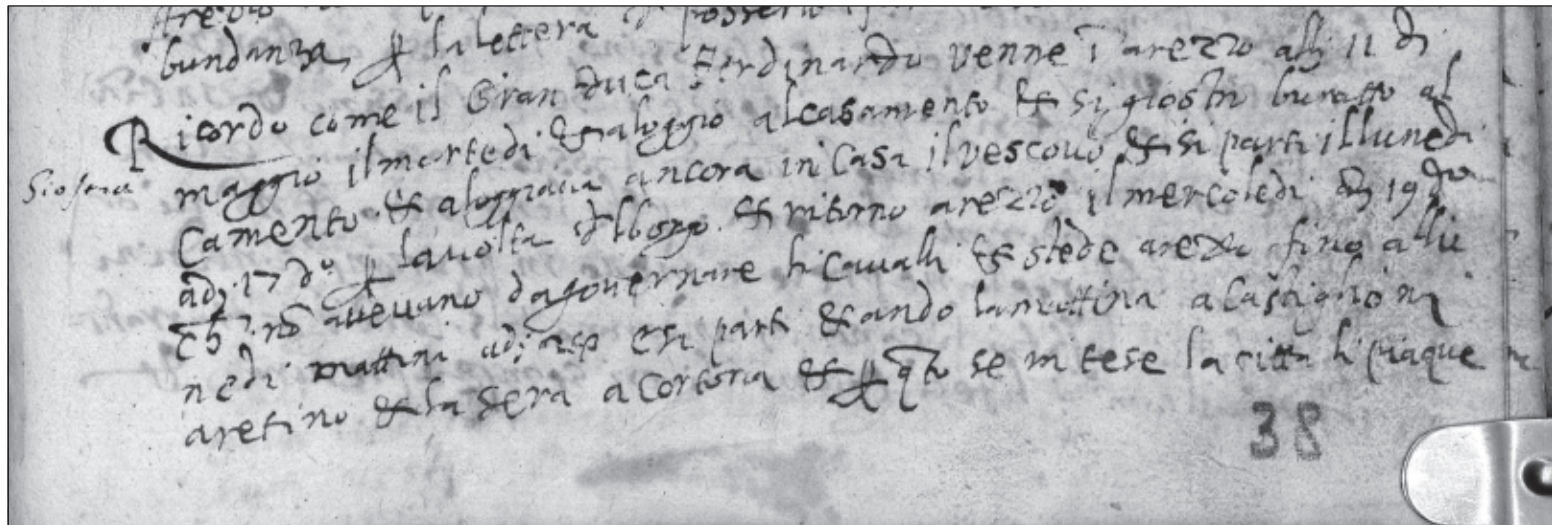 bundanza p la lettera di
Ricordo come il Gran duca Ferdinando venne ī arezzo alli 11 di
maggio il martedi & aloggio al casamento & si giostrò buratto al
Giostra
Camento & aloggiava ancora in Casa il vescovo & si parti il lunedi
adj 17 dº p la volta dl borgo & ritorno arezzo il mercoledi adj 19 dº
avevano da governare li Cavalli & stede arezo fino allu
nedi mattina adj e si parti & ando la mattina a Castiglioni
aretino & la sera a Cortona & p qto se intese la citta li piaque
38